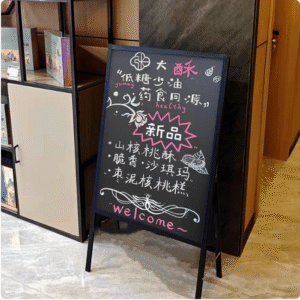 大酥
"低糖少油
yummy
药食同源"
healthy
新品
·山核桃酥
·脆香·沙琪玛
·枣泥核桃糕
welcome~